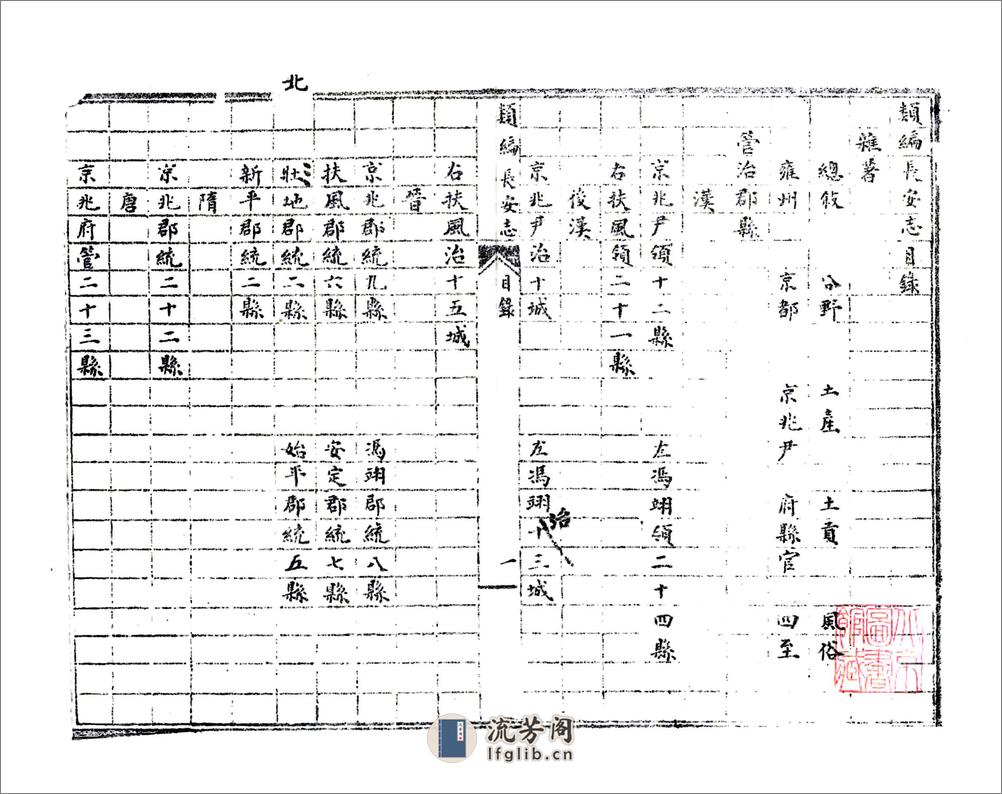 類編長安志目錄
雜著
總敘 分野 土產 土貢 風俗
雍州 京都 京兆尹 府縣官 四至
管治郡縣
漢
京兆尹領十二縣 左馮翊領二十四縣
右扶風領二十一縣
後漢
京兆尹治十城 左馮翊治十三城
類編長安志 目錄 一
右扶風治十五城
晉
京兆郡統九縣 馮翊郡統八縣
扶風郡統六縣 安定郡統七縣
北
壯地郡統二縣 始平郡統五縣
新平郡統二縣
隋
京兆郡統二十二縣
唐
京兆府管二十三縣
北京圖書館藏
流芳阁
lfglib.cn